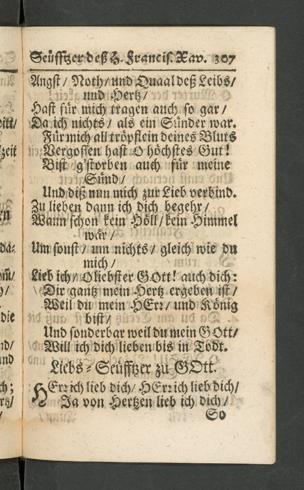 Seüfftzer deß H. Francis. Xav. 307
Angst / Noth / und Quaal deß Leibs /
und Hertz /
Hast für mich tragen auch so gar /
Da ich nichts / als ein Sünder war.
Für mich all tröpflein deines Bluts
Vergossen hast O höchstes Gut!
Bist g'storben auch für meine
Sünd /
Und diß nun mich zur Lieb verbind.
Zu lieben dann ich dich begehr /
Wann schon kein Höll / kein Himmel
wär /
Um sonst / um nichts / gleich wie du
mich /
Lieb ich / O liebster GOtt! auch dich:
Dir gantz mein Hertz ergeben ist /
Weil du mein HErr / und König
bist /
Und sonderbar weil du mein GOtt /
Will ich dich lieben bis in Todt.
Liebs-Seüfftzer zu GOtt.
HErr ich lieb dich / HErr ich lieb dich /
Ja von Hertzen lieb ich dich /
So